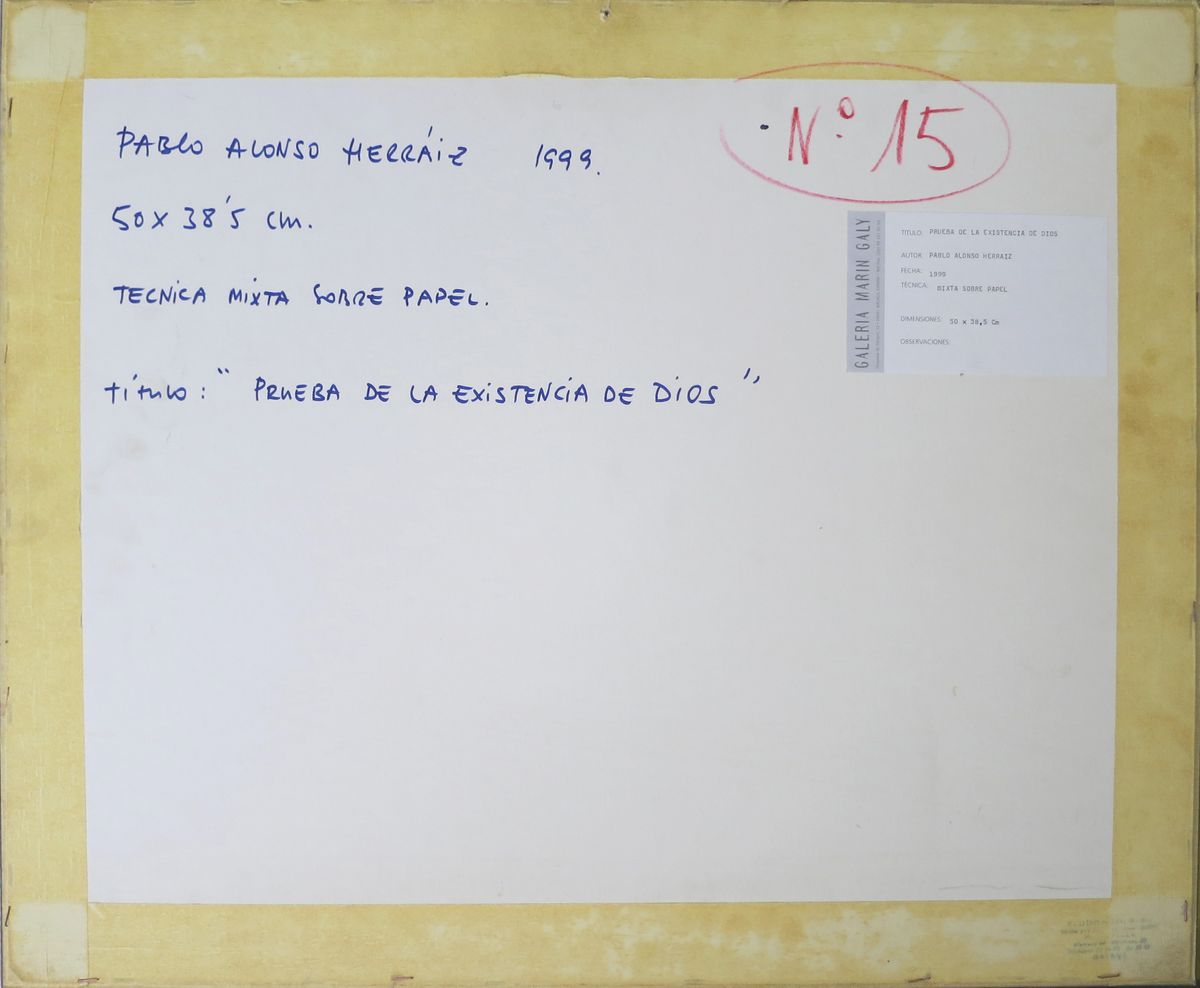 PABLO ALONSO HERRÁIZ 1999.
50 x 38'5 cm.
TECNICA MIXTA SOBRE PAPEL.
título: " PRUEBA DE LA EXISTENCIA DE DIOS "
Nº 15
GALERIA MARIN GALY
TITULO: PRUEBA DE LA EXISTENCIA DE DIOS
AUTOR: PABLO ALONSO HERRAIZ
FECHA: 1999
TÉCNICA: MIXTA SOBRE PAPEL
DIMENSIONES: 50 x 38,5 Cm
OBSERVACIONES: